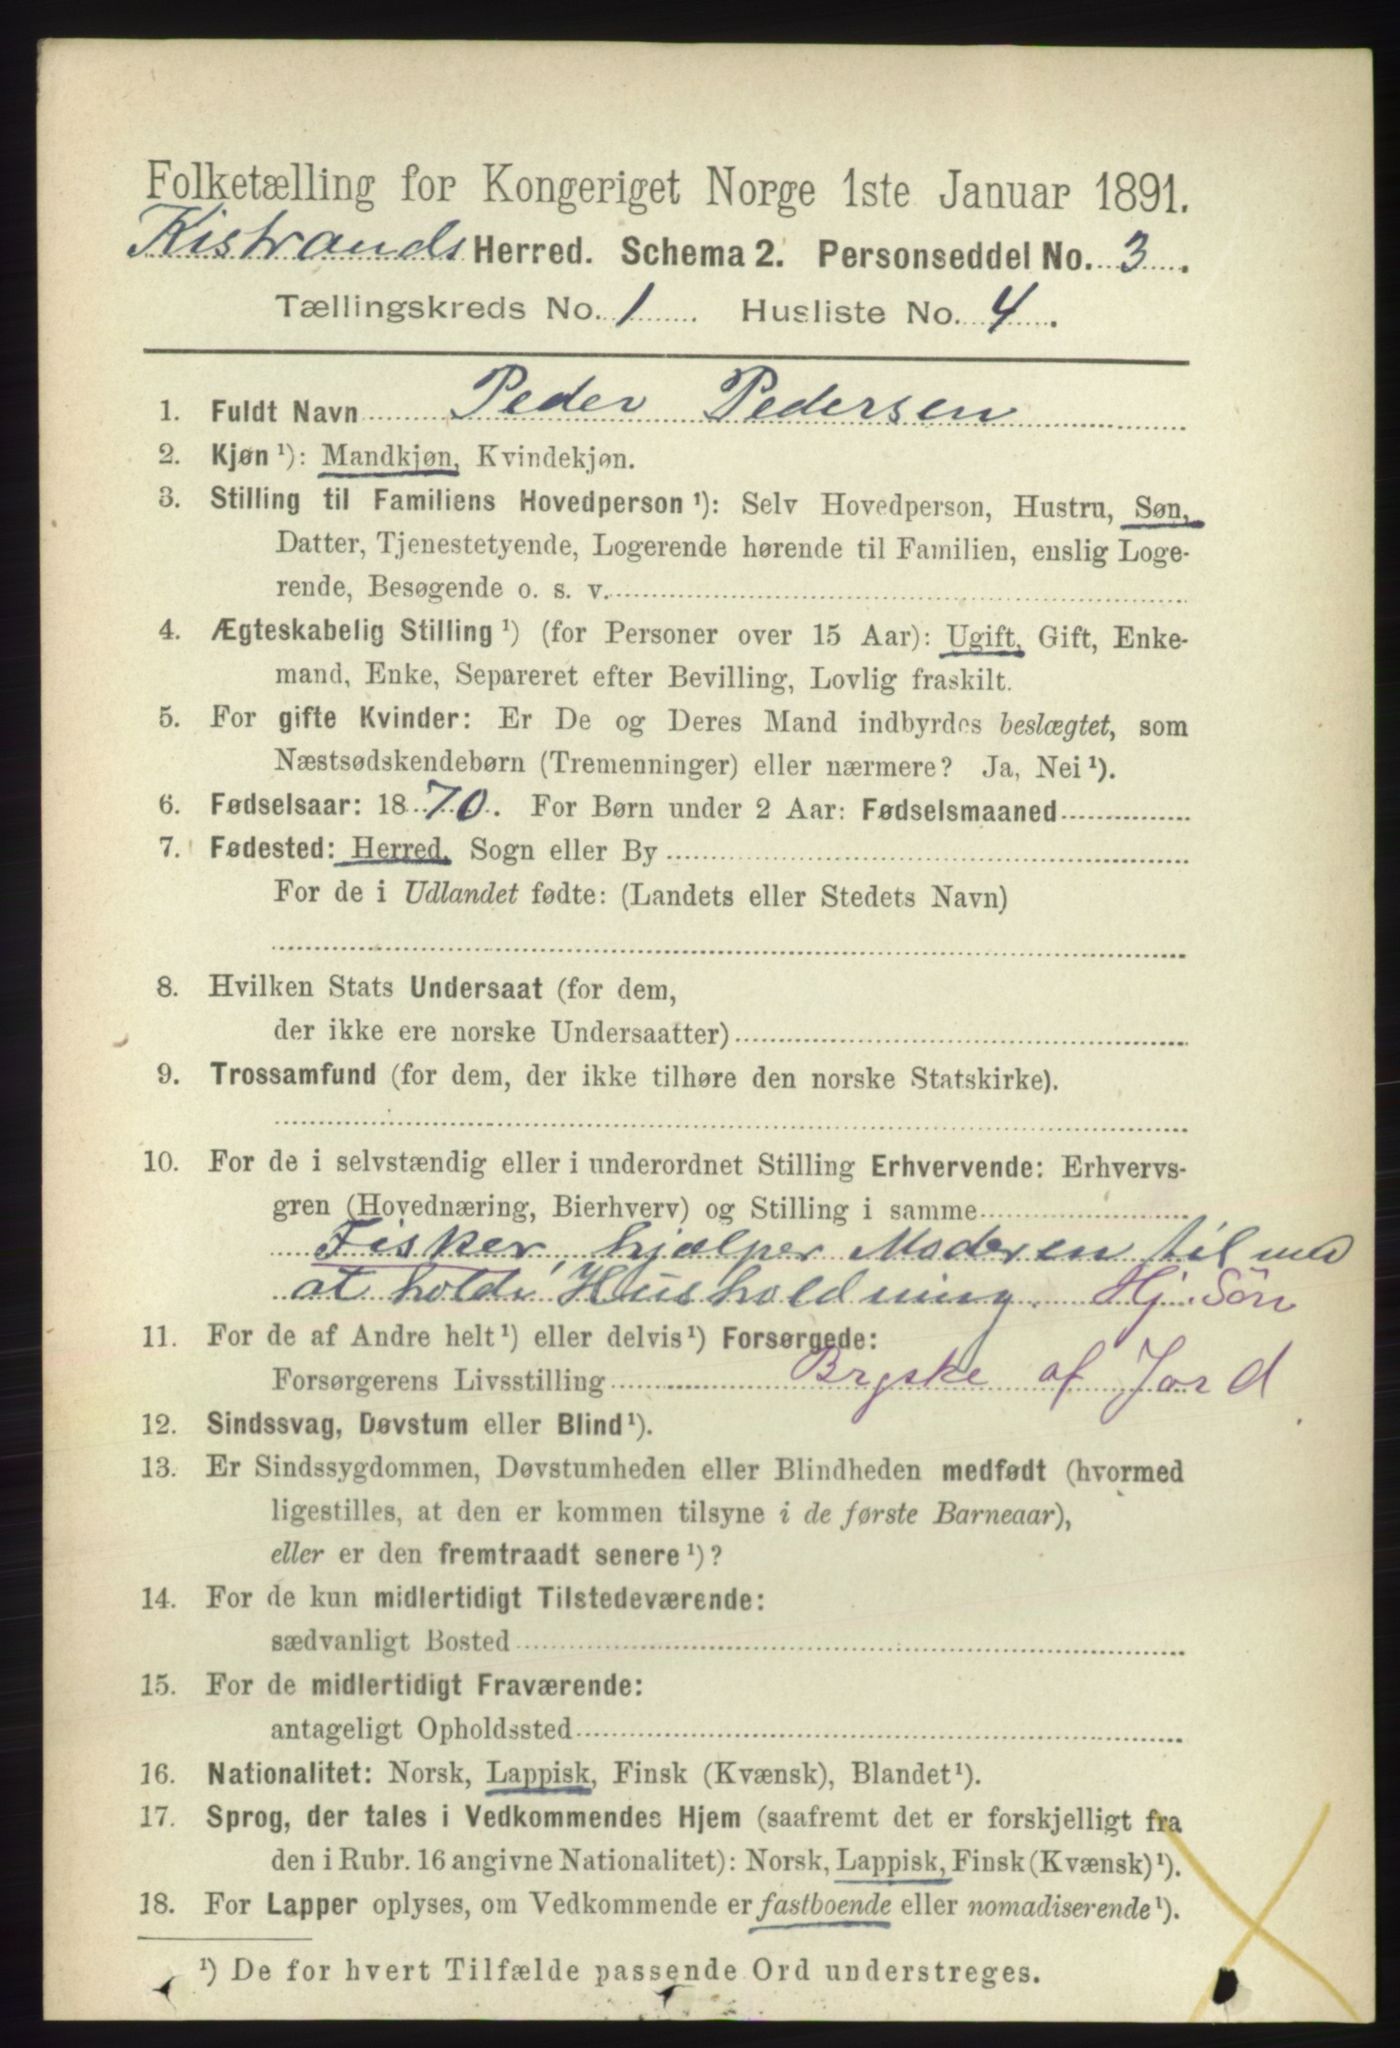 Folketælling for Kongeriget Norge 1ste Januar 1891.
Kistrands Herred. Schema 2. Personseddel No. 3.
Tællingskreds No. 1 Husliste No. 4.
1. Fuldt Navn Peder Pedersen
2. Kjøn ¹): Mandkjøn, Kvindekjøn.
3. Stilling til Familiens Hovedperson ¹): Selv Hovedperson, Hustru, Søn,
Datter, Tjenestetyende, Logerende hørende til Familien, enslig Loge-
rende, Besøgende o. s. v.
4. Ægteskabelig Stilling ¹) (for Personer over 15 Aar): Ugift, Gift, Enke-
mand, Enke, Separeret efter Bevilling, Lovlig fraskilt.
5. For gifte Kvinder: Er De og Deres Mand indbyrdes beslægtet, som
Næstsødskendebørn (Tremenninger) eller nærmere? Ja, Nei ¹).
6. Fødselsaar: 1870. For Børn under 2 Aar: Fødselsmaaned
7. Fødested: Herred, Sogn eller By
For de i Udlandet fødte: (Landets eller Stedets Navn)
8. Hvilken Stats Undersaat (for dem,
der ikke ere norske Undersaatter)
9. Trossamfund (for dem, der ikke tilhøre den norske Statskirke).
10. For de i selvstændig eller i underordnet Stilling Erhvervende: Erhvervs-
gren (Hovednæring, Bierhverv) og Stilling i samme
Fisker, hjælper Moderen til med
at holde Husholdning. Hj. Sön
11. For de af Andre helt ¹) eller delvis ¹) Forsørgede:
Forsørgerens Livsstilling Brgske af Jord
12. Sindssvag, Døvstum eller Blind ¹).
13. Er Sindssygdommen, Døvstumheden eller Blindheden medfødt (hvormed
ligestilles, at den er kommen tilsyne i de første Barneaar),
eller er den fremtraadt senere ¹)?
14. For de kun midlertidigt Tilstedeværende:
sædvanligt Bosted
15. For de midlertidigt Fraværende:
antageligt Opholdssted
16. Nationalitet: Norsk, Lappisk, Finsk (Kvænsk), Blandet ¹).
17. Sprog, der tales i Vedkommendes Hjem (saafremt det er forskjelligt fra
den i Rubr. 16 angivne Nationalitet): Norsk, Lappisk, Finsk (Kvænsk) ¹).
18. For Lapper oplyses, om Vedkommende er fastboende eller nomadiserende ¹).
¹) De for hvert Tilfælde passende Ord understreges.